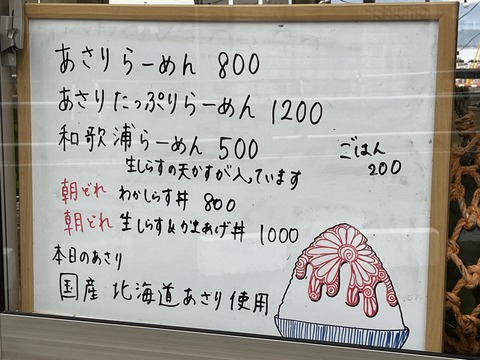 あさりらーめん 800
あさりたっぷりらーめん 1200
和歌浦らーめん 500
生しらすの天かすが入っています
ごはん
200
朝どれ わかしらす丼 800
朝どれ 生しらす&かまあげ丼 1000
本日のあさり
国産 北海道あさり使用